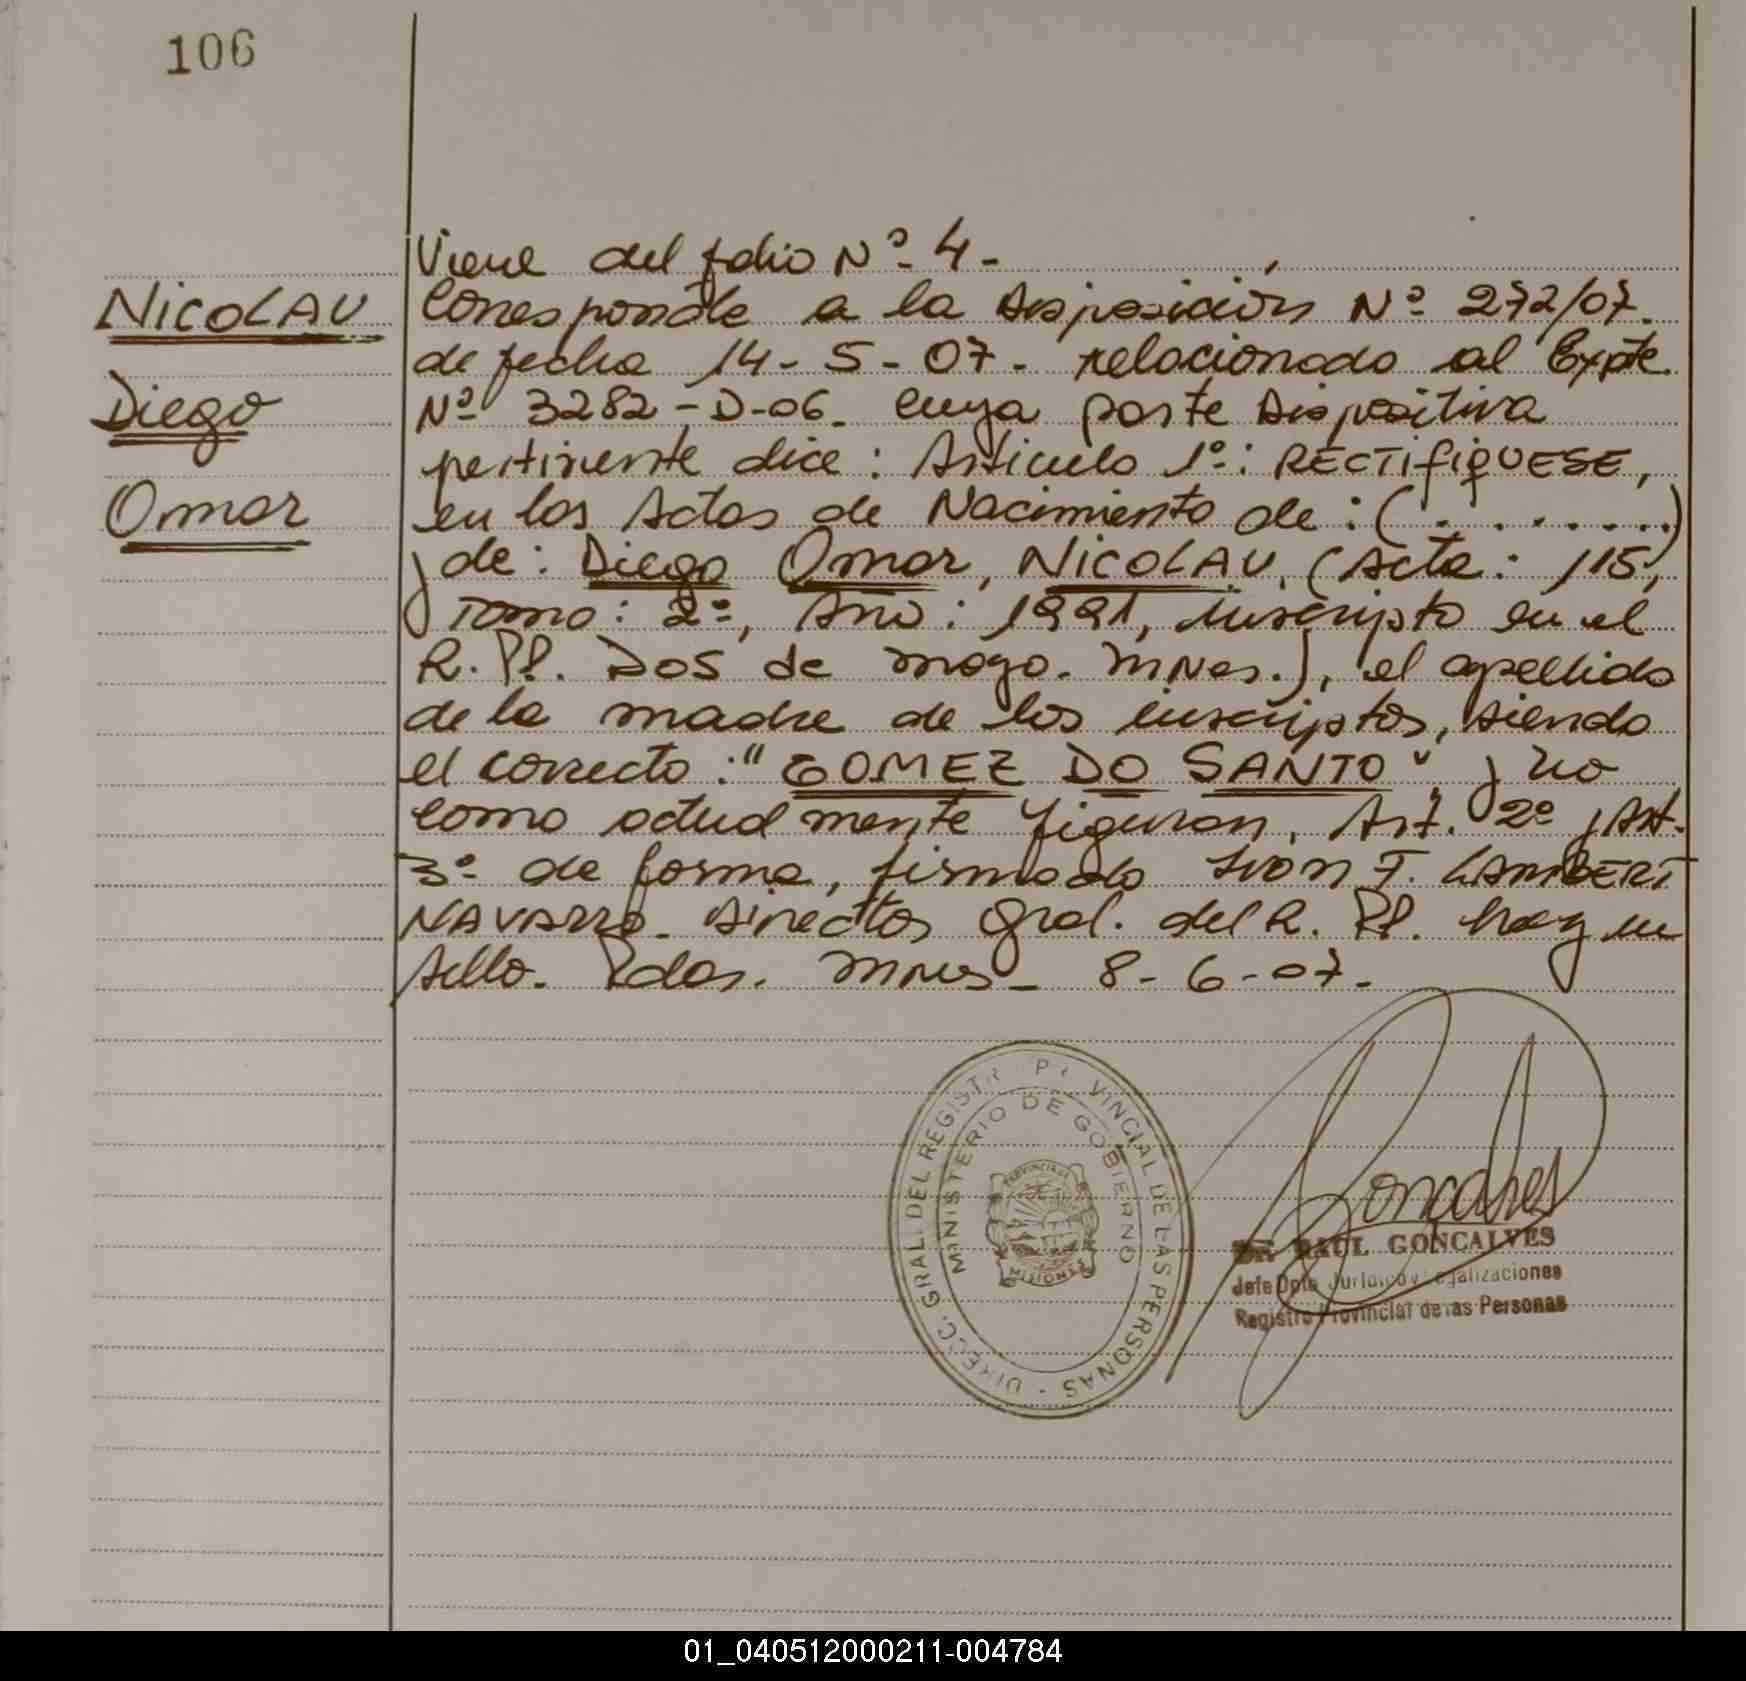 106
Viene del folio Nº 4.-
NICOLAU
Corresponde a la Disposición Nº 272/07.
de fecha 14-5-07. relacionado al Expte.
Diego
Nº 3282-D-06. cuya parte Dispositiva
pertinente dice: Articulo 1º: RECTIFIQUESE,
Omar
en las Actas de Nacimiento de: (........)
y de: Diego Omar, NICOLAU, (Acta: 115,
Tomo: 2º, Año: 1991, inscripto en el
R.PP. DOS de mayo. MNes.), el apellido
de la madre de los inscriptos, siendo
el correcto: "GOMEZ DO SANTO" y no
como actualmente figuran, Art. 2º y Art.
3º de forma, firmado Iván F. LAMBERT
NAVARRO. Director Gral. del R. PP. hay un
sello. Pdas. MNes_ 8-6-07.-
DIRECC. GRAL. DEL REGISTR PR VINCIAL DE LAS PERSONAS -
MINISTERIO DE GOBIERNO
PROVINCIA
MISIONES
Goncalves
DR. RAUL GONCALVES
Jefe Dpto. Jurídico y Legalizaciones
Registro Provincial de las Personas
01_040512000211-004784